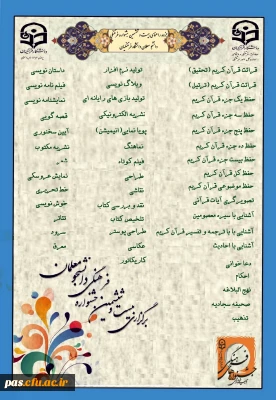 قرائت قرآن کریم (تحقیق)
قرائت قرآن کریم (ترتیل)
حفظ یک جزء قرآن کریم
حفظ سه جزء قرآن کریم
حفظ پنج جزء قرآن کریم
حفظ ده جزء قرآن کریم
حفظ بیست جزء قرآن کریم
حفظ کل قرآن کریم
حفظ موضوعی قرآن کریم
تصویرگری آیات قرآنی
آشنایی با سیره معصومین
آشنایی با ترجمه و تفسیر قرآن کریم
آشنایی با احادیث
دعا خوانی
احکام
نهج البلاغه
صحیفه سجادیه
تذهیب
تولید نرم افزار
وبلاگ نویسی
تولید بازی های رایانه ای
نشریه الکترونیکی
پویا نمایی (انیمیشن)
نماهنگ
فیلم کوتاه
طراحی
نقاشی
نقد و بررسی کتاب
تلخیص کتاب
طراحی پوستر
عکاسی
کاریکاتور
داستان نویسی
فیلم نامه نویسی
نمایشنامه نویسی
قصه گویی
آیین سخنوری
نشریه مکتوب
شعر
نمایش عروسکی
خط تحریری
خوش نویسی
تئاتر
سرود
معرق
برگزاری بیست و ششمین جشنواره
فرهنگی دانشجو معلمان
pas.cfu.ac.ir